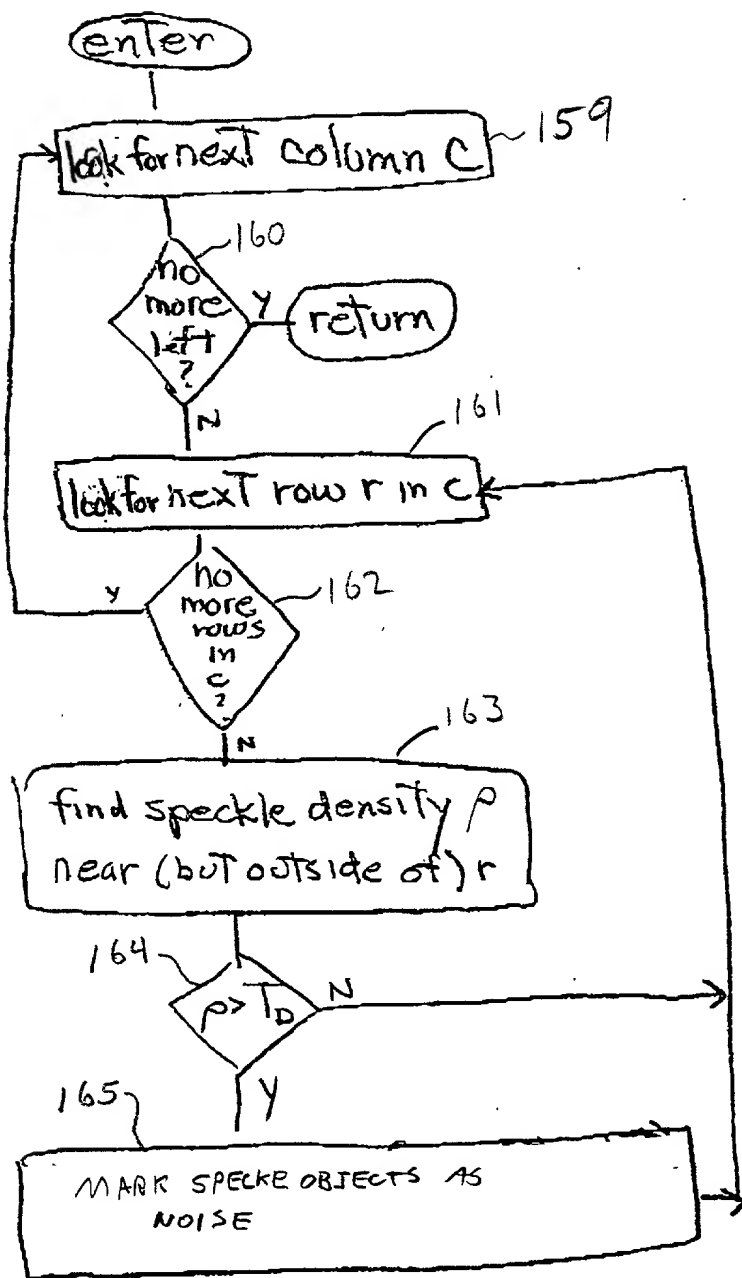 enter
look for next column C
159
160
no
more
left
?
Y
return
N
161
look for next row r in c
162
no
more
rows
in
c
?
Y
N
163
find speckle density ρ
near (but outside of) r
164
ρ > T_D
N
Y
165
MARK SPECKE OBJECTS AS
NOISE